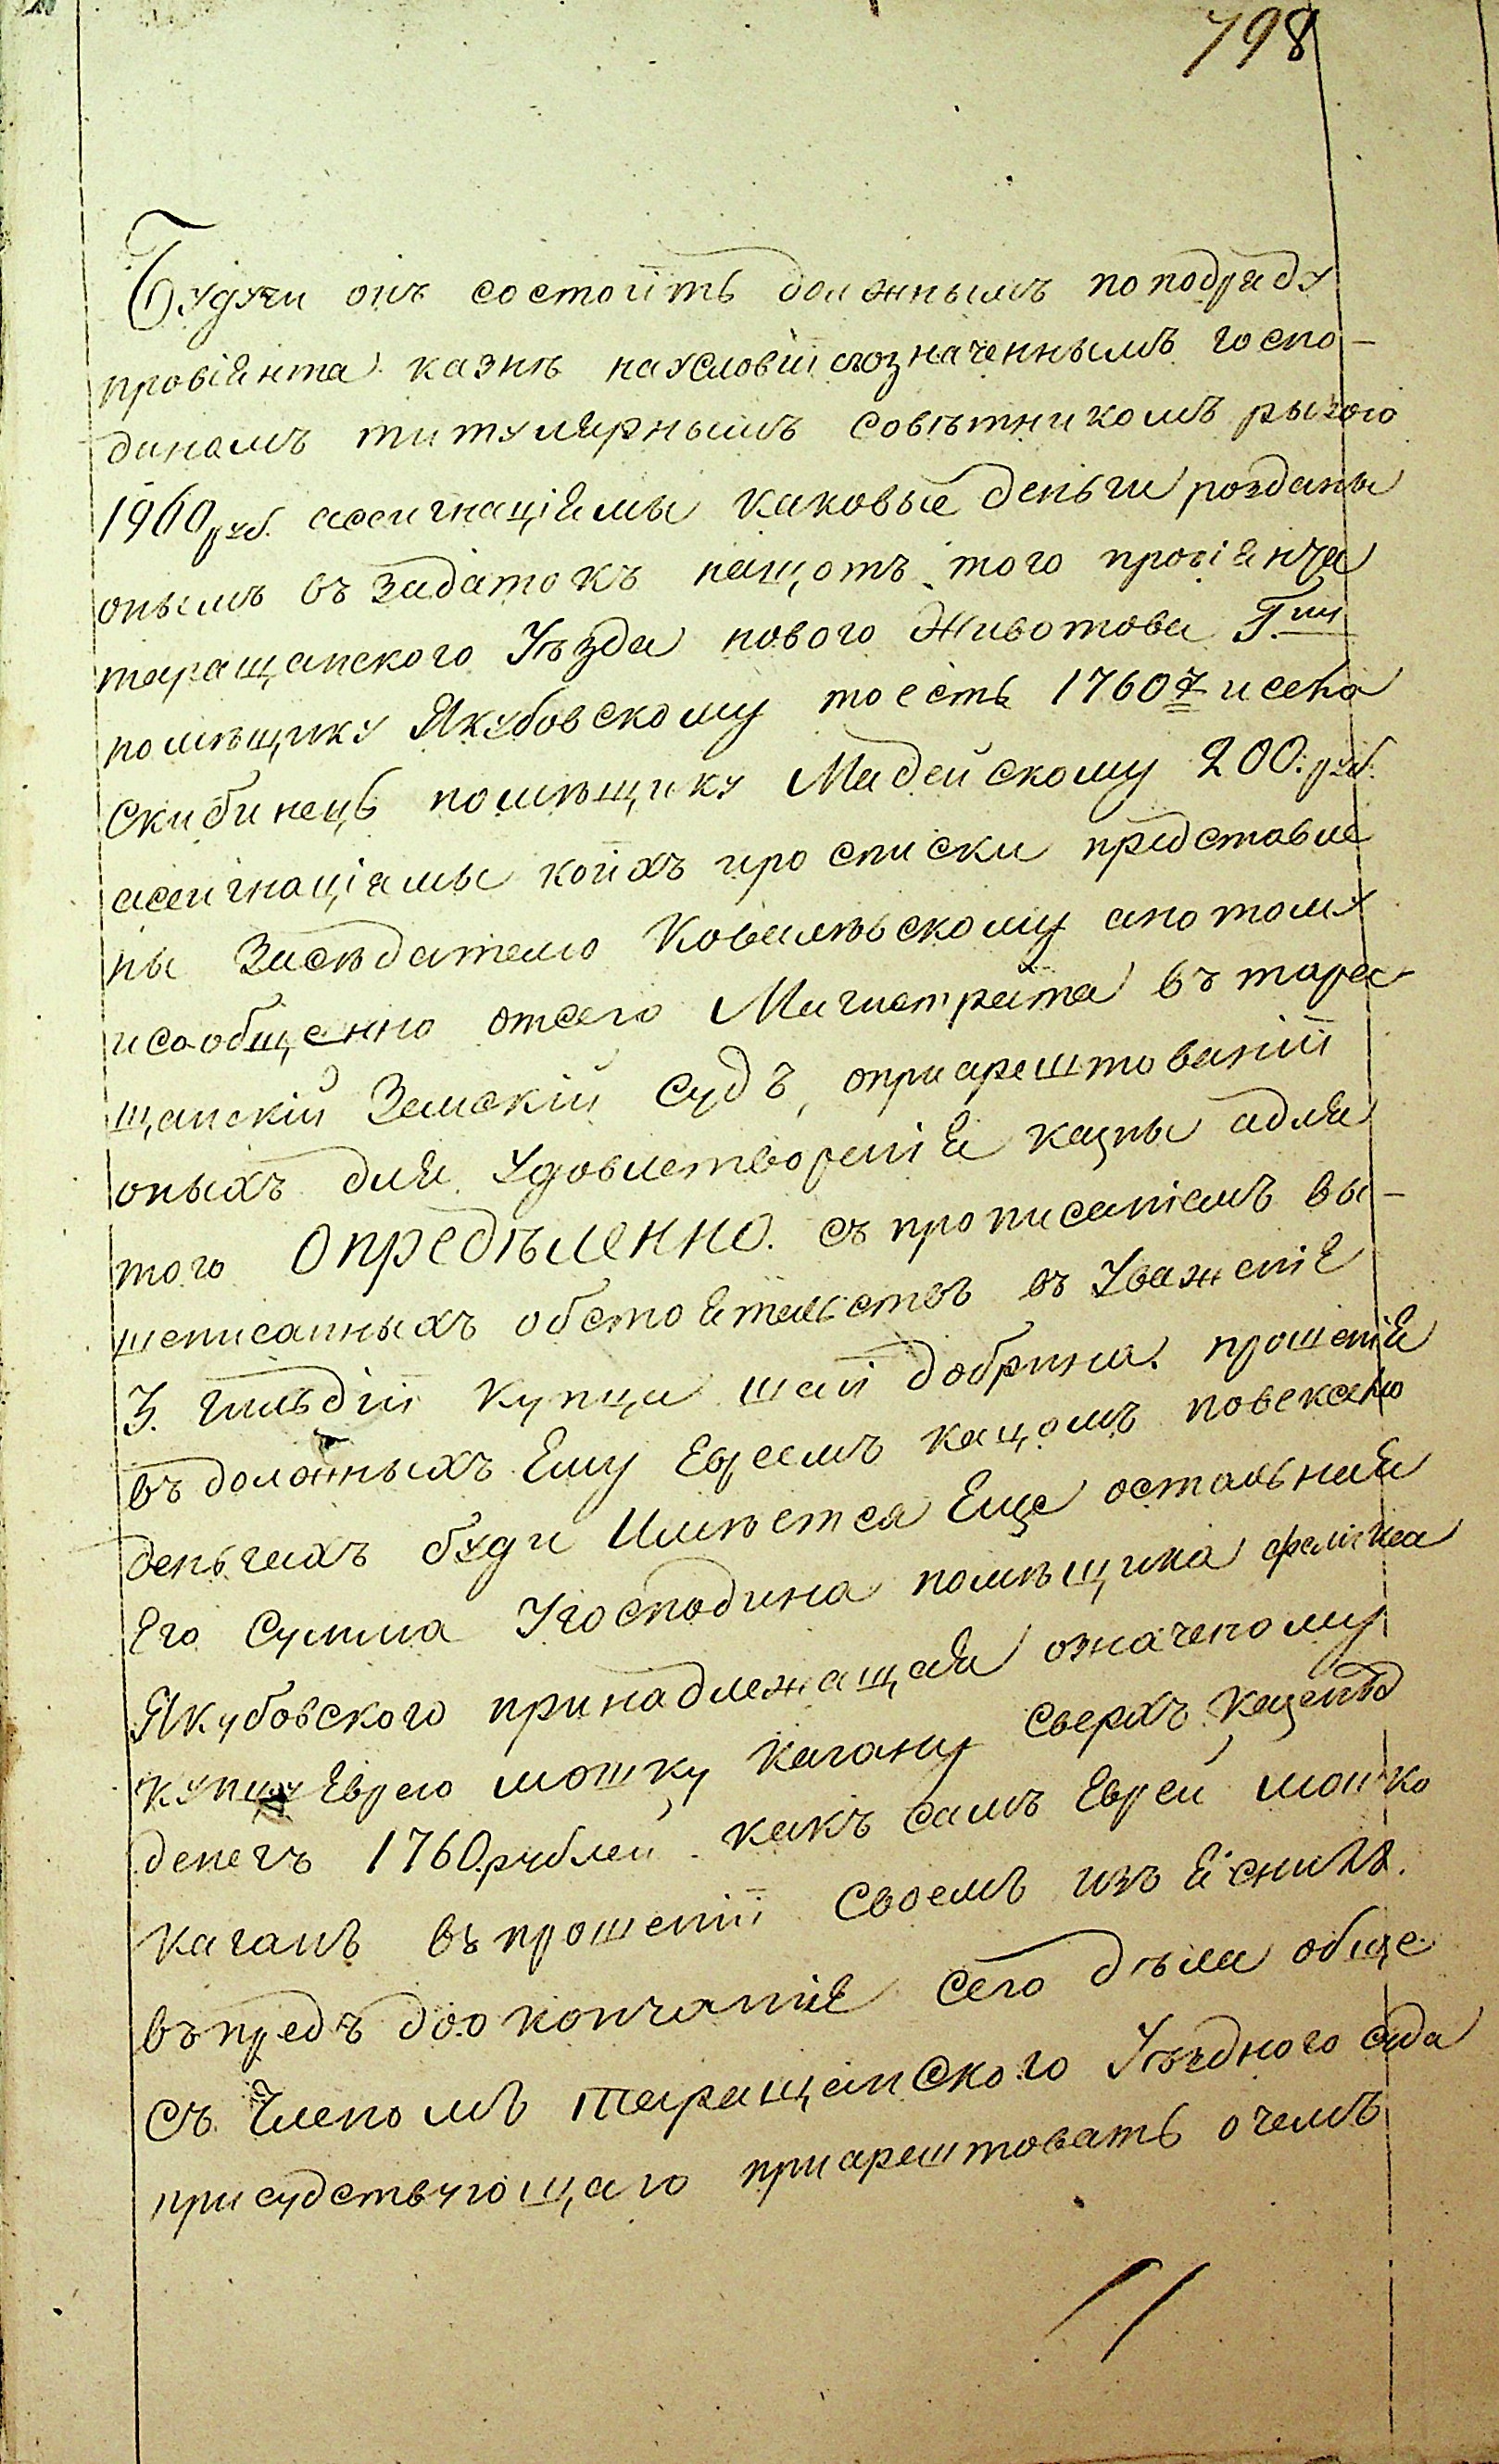 798
Будучи онъ состоитъ должнымъ поподряду
провіянта казнѣ наусловіи означеннымъ госпо-
диномъ титулярнымъ совѣтникомъ
1960 руб. ассигнаціямы каковые деньги розданы
онымъ въ задатокъ нащотъ того провіянта
таращанского Уѣзда нового Животова Г.ну
помѣщику Якубовскому тоесть 1760 р исела
Скибинецъ помѣщику Мадейскому 200. руб.
асеигнаціямы коихъ иросписки представле
ны Засѣдателю Ковалѣвскому апотому
исообщенно отсего Магистрата въ тара-
щанскій Земскій Судъ, оприарештованіи
оныхъ для удовлетворенія казны адля
того Опредѣленно. съ прописаніемъ вы-
шеписанныхъ обстоятельствъ въ Уваженіе
3. гильдіи купца шаи добрина. прошенія
въ должныхъ Ему Евреемъ кацомъ повекселю
деньгахъ буди Имѣется Еще остальная
Его Сумма Угосподина помѣщика
Якубовского принадлежащая означеному
купцу Еврею мошку кагану сверхъ
денегъ 1760. рублей. какъ самъ Еврей мошко
каганъ въ прошеніи своемъ изъяснилъ.
въпредъ доокончаніе сего дѣла обще
съ Членомъ таращанского Уѣздного суда
присудствующаго приарештовать очемъ